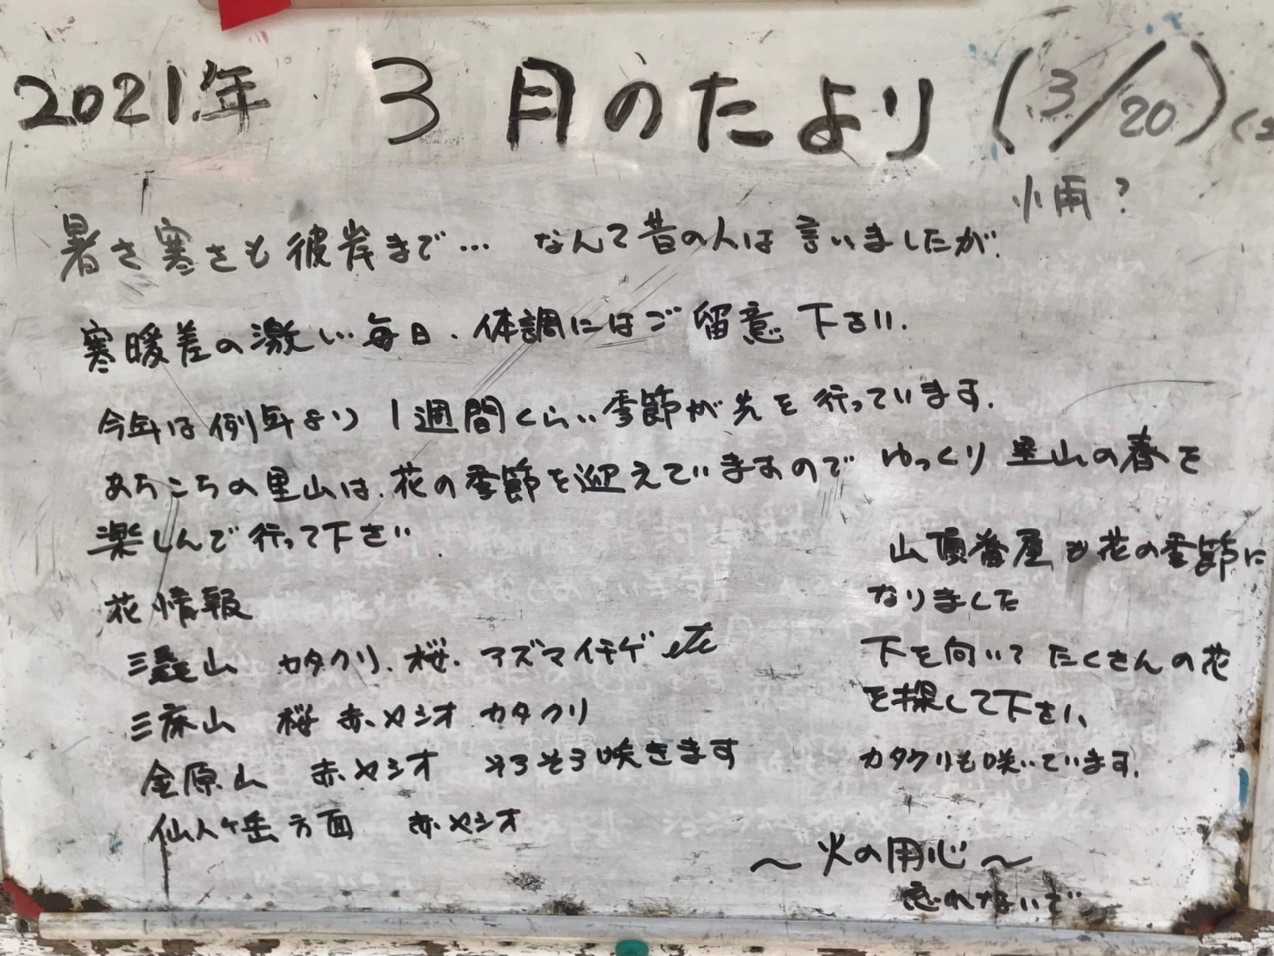 2021.年 3月のたより (3/20)
小雨?
暑さ寒さも彼岸まで… なんて昔の人は言いましたが.
寒暖差の激しい毎日、体調にはご留意下さい.
今年は例年より1週間くらい季節が先を行っています.
あちこちの里山は、花の季節を迎えていますので ゆっくり里山の春を
楽しんで行って下さい.
花情報
三毳山 カタクリ、桜、アズマイチゲ etc
三床山 桜 赤ヤシオ カタクリ
金原山 赤ヤシオ そろそろ咲きます
仙人ヶ岳方面 赤ヤシオ
山頂番屋も花の季節に
なりました
下を向いてたくさんの花
を探して下さい、
カタクリも咲いています.
〜火の用心〜
忘れないで